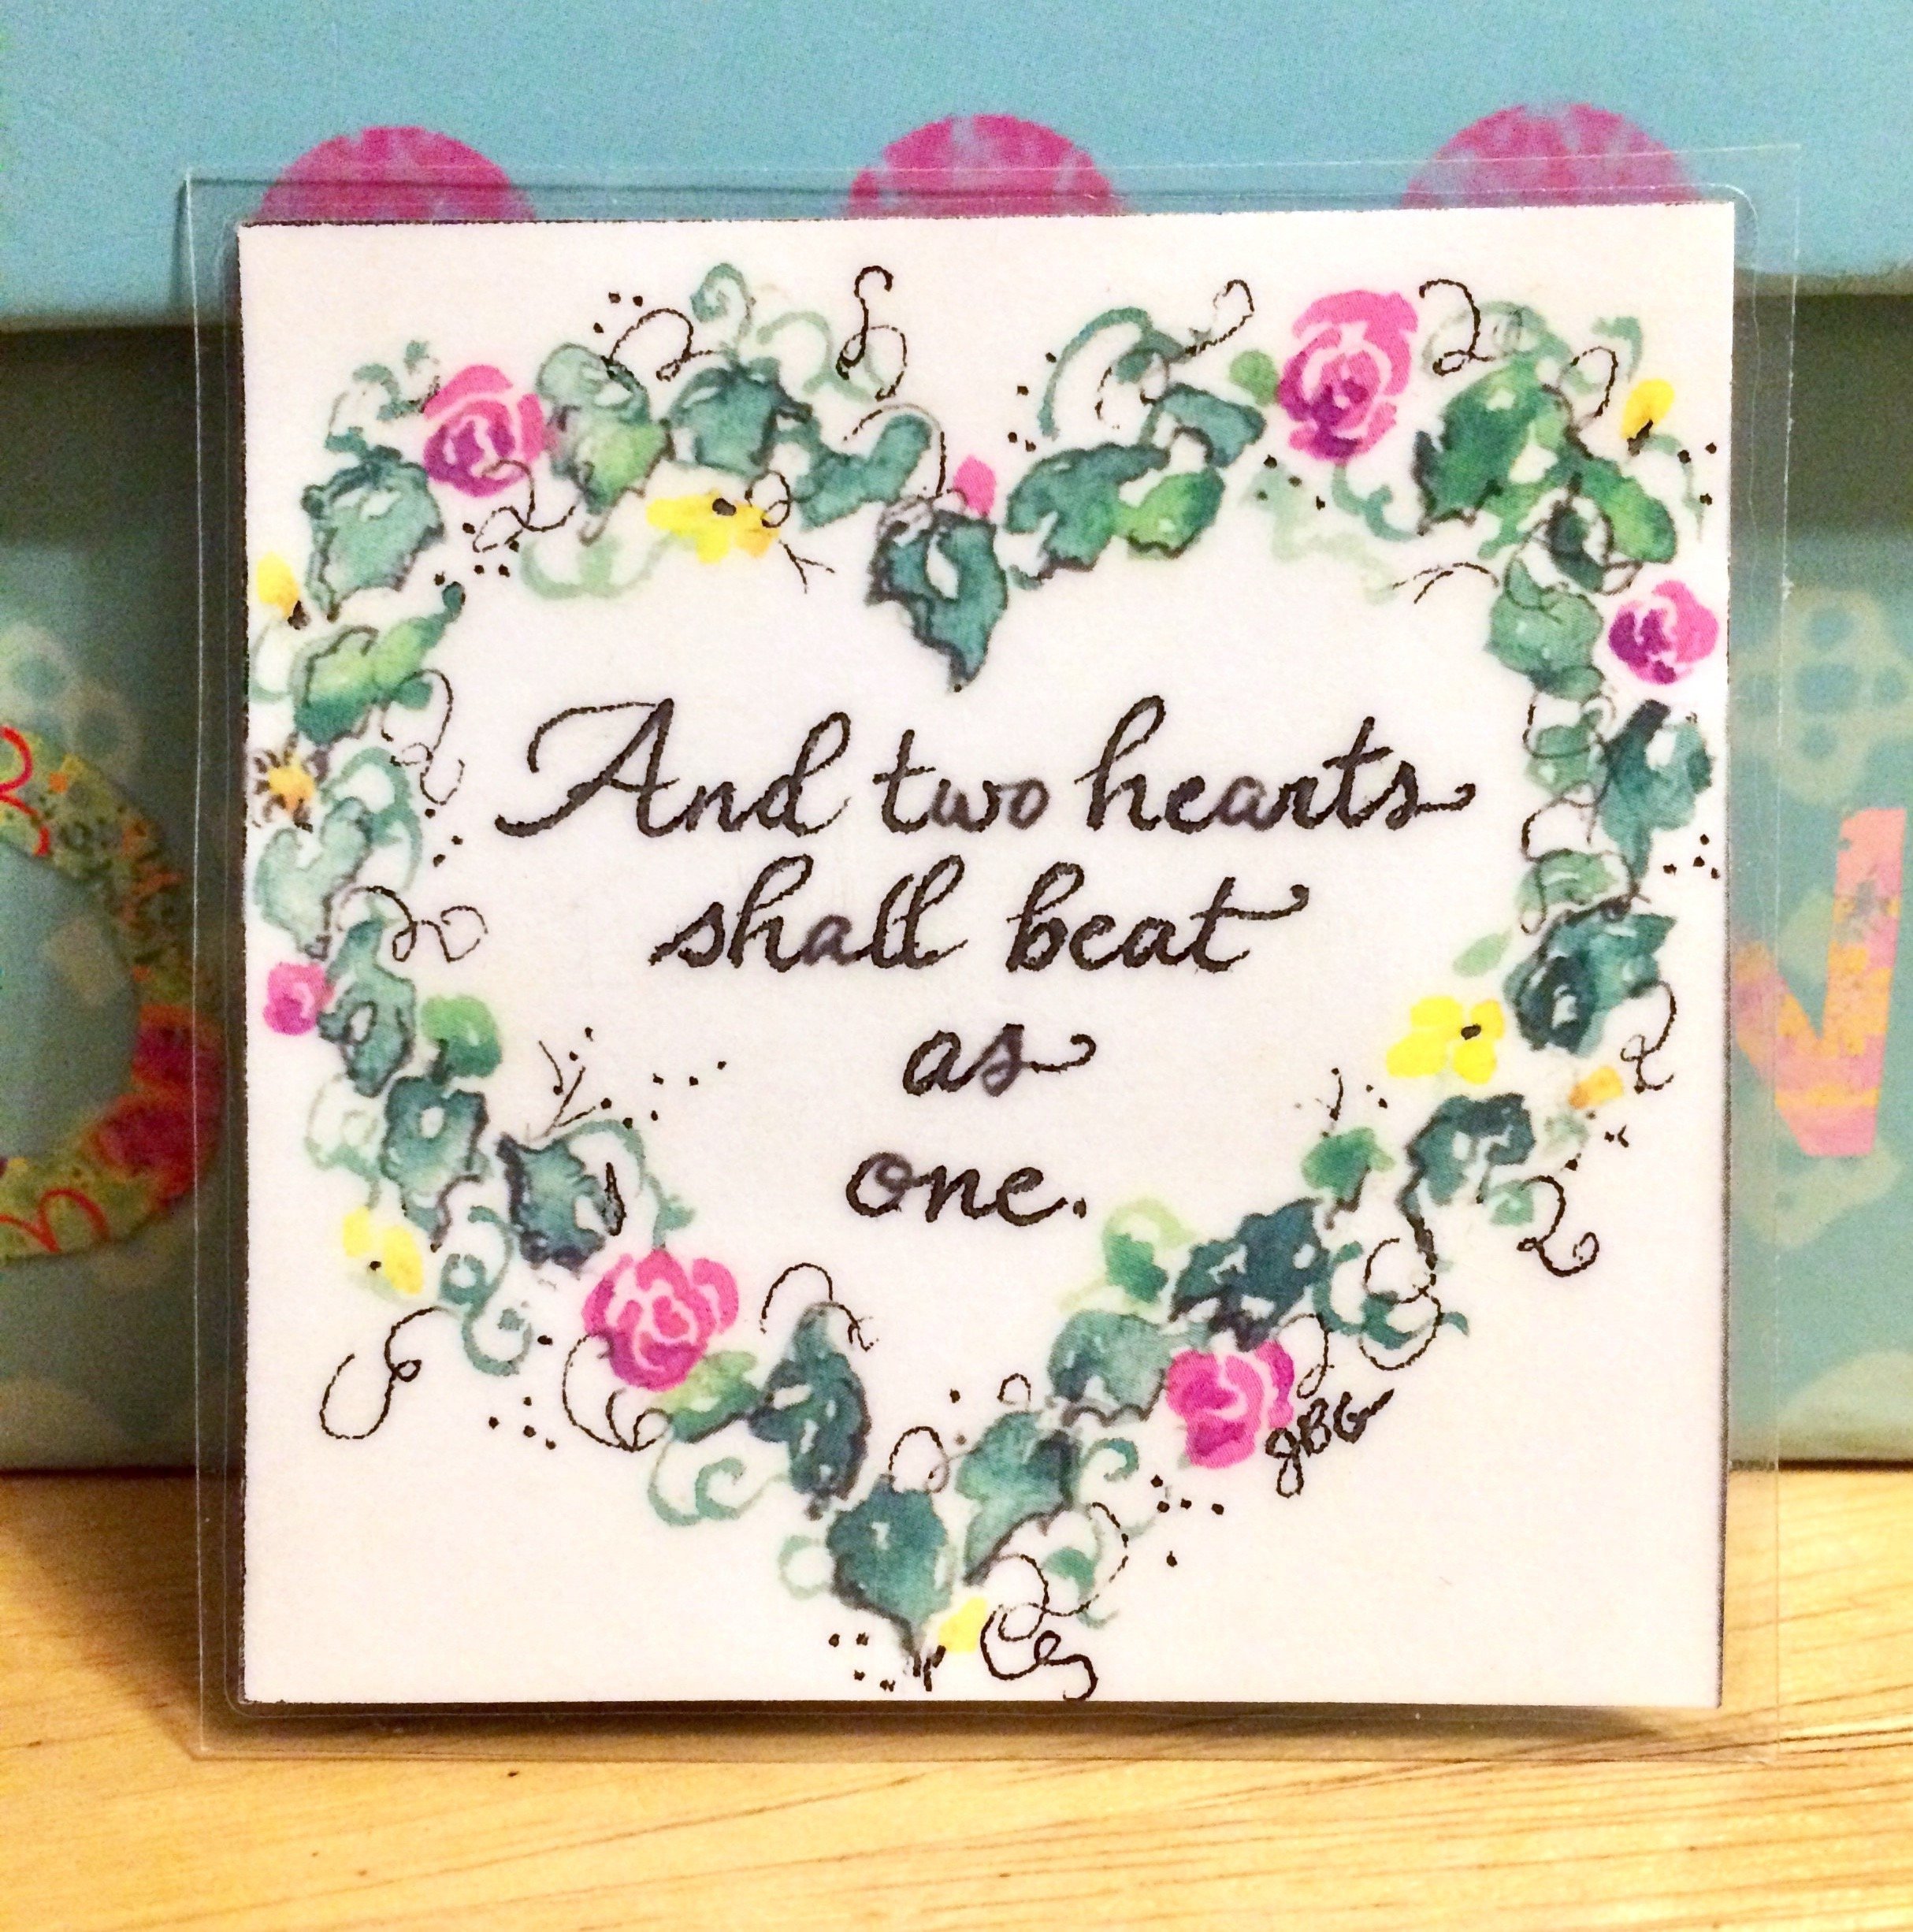 And two hearts
shall beat
as
one.
JBG